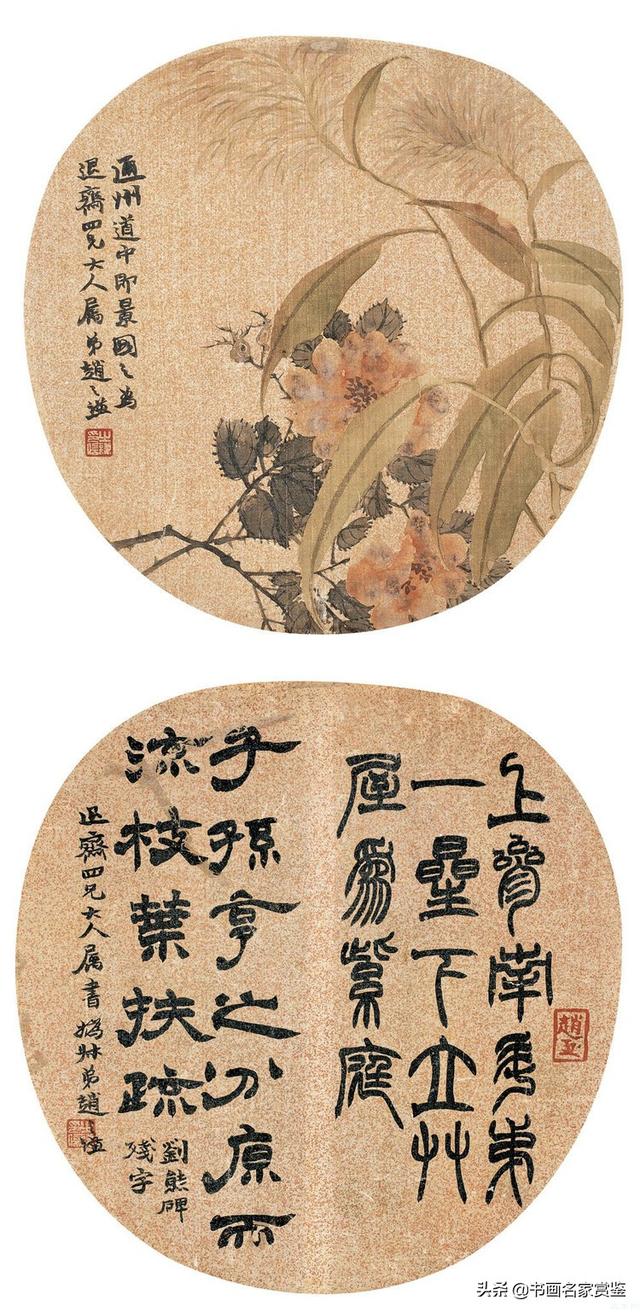 通州道中即景圖之為
退齋四兄大人屬弟趙之謙
上南弟
一下立艸
屋爲紫庭
子孫亨之分原而
流枝葉扶疏
劉熊碑
殘字
退齋四兄大人属書撝叔弟趙之謙
頭条 @书画名家赏鉴